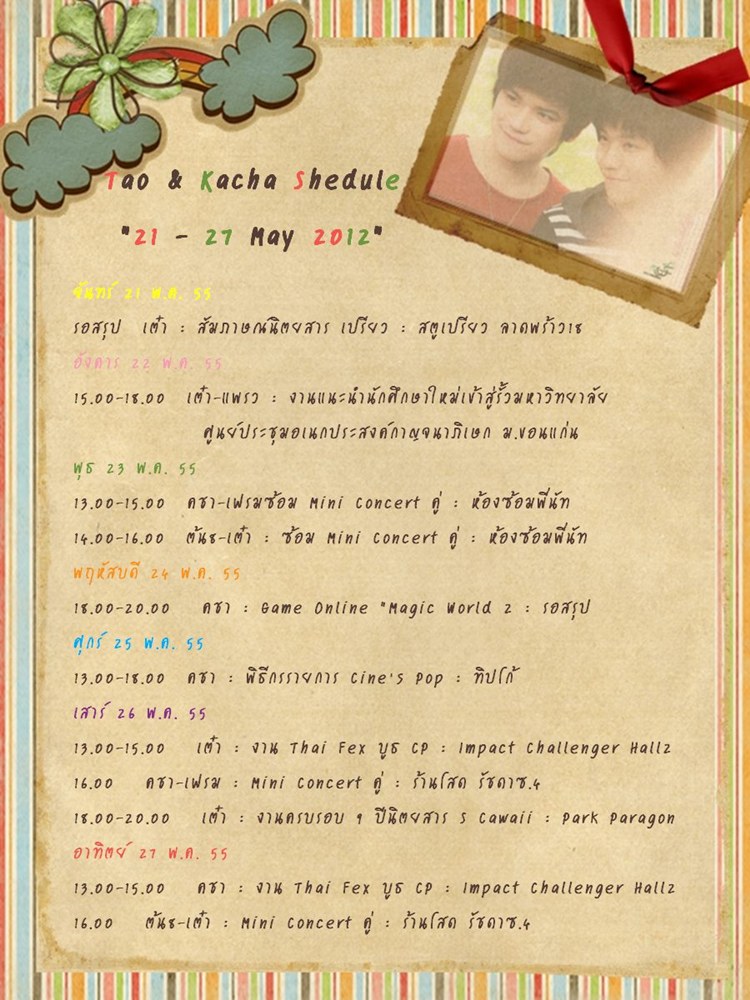 Tao & Kacha Shedule
"21 - 27 May 2012"
จันทร์ 21 พ.ค. 55
รอสรุป เต๋า : สัมภาษณ์นิตยสาร เปรียว : สตูเปรียว ลาดพร้าว18
อังคาร 22 พ.ค. 55
15.00-18.00 เต๋า-แพรว : งานแนะนำนักศึกษาใหม่เข้าสู่รั้วมหาวิทยาลัย
ศูนย์ประชุมอเนกประสงค์กาญจนาภิเษก ม.ขอนแก่น
พุธ 23 พ.ค. 55
13.00-15.00 คชา-เฟรมซ้อม Mini Concert คู่ : ห้องซ้อมพี่นัท
14.00-16.00 ต้นธ-เต๋า : ซ้อม Mini Concert คู่ : ห้องซ้อมพี่นัท
พฤหัสบดี 24 พ.ค. 55
18.00-20.00 คชา : Game Online "Magic World 2 : รอสรุป
ศุกร์ 25 พ.ค. 55
13.00-18.00 คชา : พิธีกรรายการ Cine's Pop : ทิปโก้
เสาร์ 26 พ.ค. 55
13.00-15.00 เต๋า : งาน Thai Fex บูธ CP : Impact Challenger Hall2
16.00 คชา-เฟรม : Mini Concert คู่ : ร้านโสด รัชดาซ.4
18.00-20.00 เต๋า : งานครบรอบ 9 ปีนิตยสาร S Cawaii : Park Paragon
อาทิตย์ 27 พ.ค. 55
13.00-15.00 คชา : งาน Thai Fex บูธ CP : Impact Challenger Hall2
16.00 ต้นธ-เต๋า : Mini Concert คู่ : ร้านโสด รัชดาซ.4